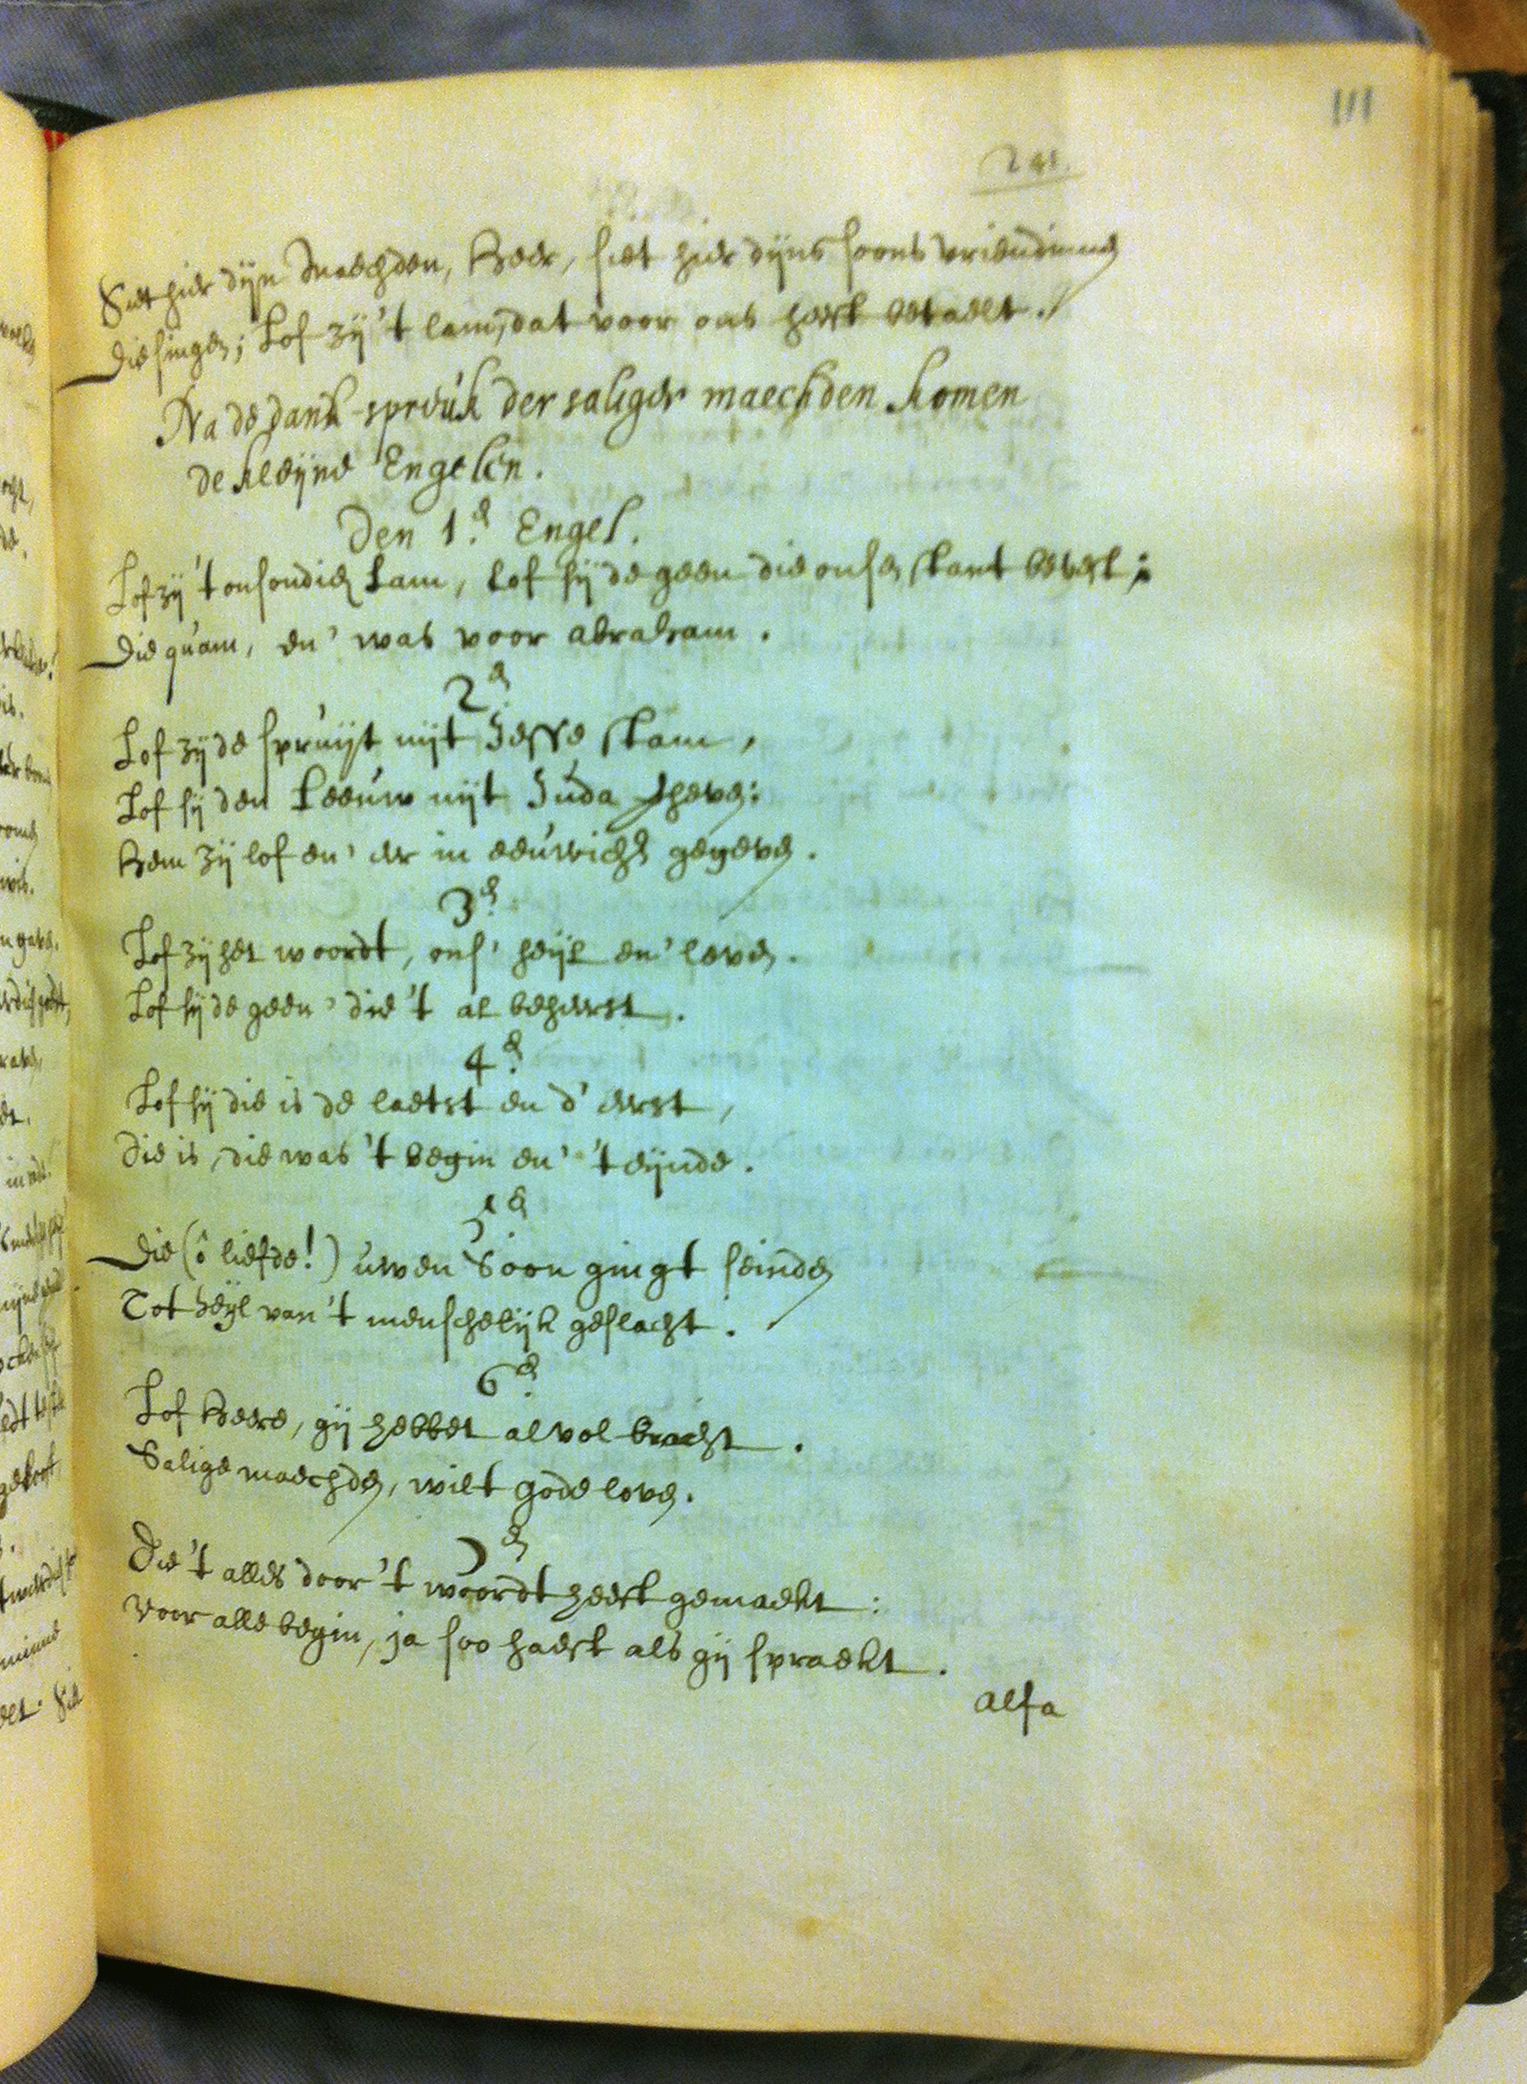 111
241.
Siet hier dijn Maechden, Heer, siet hier dijns soons vriendinnen
Die singen; Lof zij 't lam, dat voor ons heeft betaelt.
Na de dank-spreuk der saliger maechden komen
de kleijne Engelen.
Den 1.e Engel.
Lof zij 't onsondich Lam, Lof sij de geen die onsen
Die quam, en' was voor abraham.
2.e
Lof zij de spruijt uijt Jesse stam,
Lof sij den Leeuw uijt Juda
Hem zij lof en' eer in eeuwicht gegeven.
3.e
Lof zij het woordt, ons' heijl en' leven.
Lof sij de geen' die 't al beheerst.
4.e
Lof sij die is de laetst en d' eerst,
Die is, die was 't begin en' 't eijnde.
5.e
Die (ô liefde!) uwen Soon gingt seinden
Tot heijl van 't menschelijk geslacht.
6.e
Lof Heere, gij hebbet al vol bracht.
Salige maechden, wilt gode loven.
7.e
Die 't alles door 't woordt heeft gemaekt:
Voor alle begin, ja soo haest als gij spraekt.
alfa